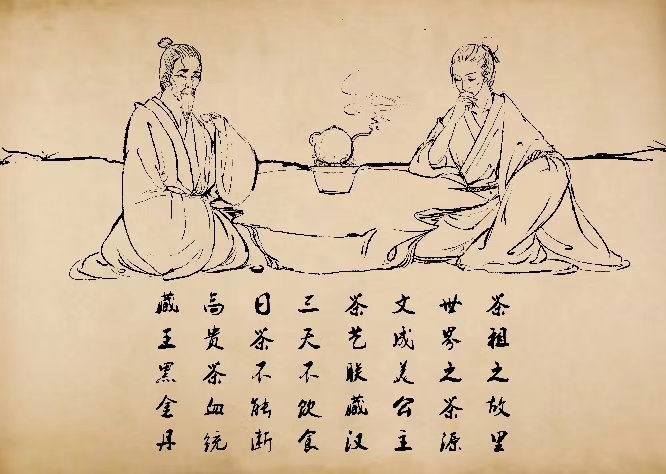 茶祖之故里
世界之茶源
文成美公主
茶艺联藏汉
三天不饮食
日茶不能断
高贵茶血统
藏王黑金丹